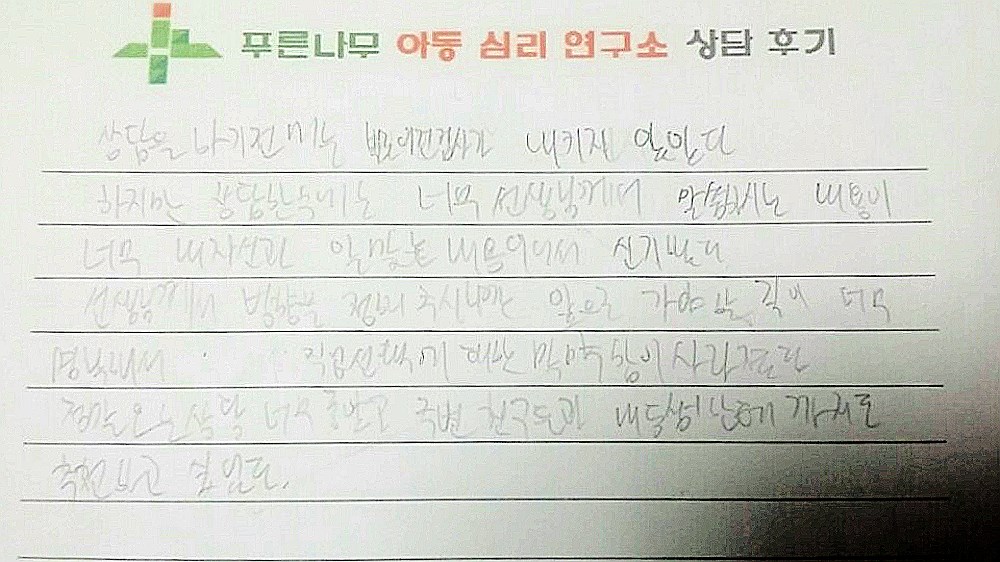 푸른나무 아동 심리 연구소 상담 후기
상담을 하기전에는 내키지 않았다
하지만 상담한후에는 너무 선생님께서 말씀하시는 내용이
너무 내자신과 알맞는 내용이어서 신기했다
선생님께서 방향을 정해 주시니깐 앞으로 가야할 길이 너무
명확해서 직업선택에 대한 막막함이 사라졌다
정말 오늘 상담 너무 좋았고 주변 친구들과 내동생 한테 까지도
추천하고 싶었다.